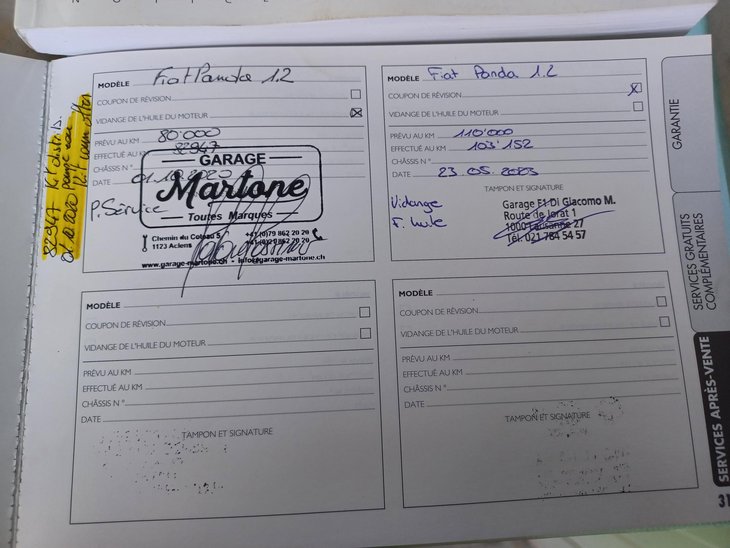 82947 Kit distrib.
01.10.2020 pompe eau
MODÈLE Fiat Panda 1.2
COUPON DE RÉVISION
VIDANGE DE L'HUILE DU MOTEUR
PRÉVU AU KM 80'000
EFFECTUÉ AU KM 82947
CHÂSSIS N°
DATE 01.10.2020
P. Service
GARAGE
Martone
Toutes Marques
Chemin du Coteau 5
1123 Aclens
+41 (0)79 862 20 20
www.garage-martone.ch - info@garage-martone.ch
MODÈLE Fiat Panda 1.2
COUPON DE RÉVISION
VIDANGE DE L'HUILE DU MOTEUR
PRÉVU AU KM 110'000
EFFECTUÉ AU KM 103'152
CHÂSSIS N°
DATE 23.05.2023
TAMPON ET SIGNATURE
Vidange
F. huile
Garage F1 Di Giacomo M.
Route de Jorat 1
1000 Lausanne 27
Tél. 021 784 54 57
MODÈLE
COUPON DE RÉVISION
VIDANGE DE L'HUILE DU MOTEUR
PRÉVU AU KM
EFFECTUÉ AU KM
CHÂSSIS N°
DATE
TAMPON ET SIGNATURE
MODÈLE
COUPON DE RÉVISION
VIDANGE DE L'HUILE DU MOTEUR
PRÉVU AU KM
EFFECTUÉ AU KM
CHÂSSIS N°
DATE
TAMPON ET SIGNATURE
GARANTIE
SERVICES GRATUITS
COMPLÉMENTAIRES
SERVICES APRÈS-VENTE
31